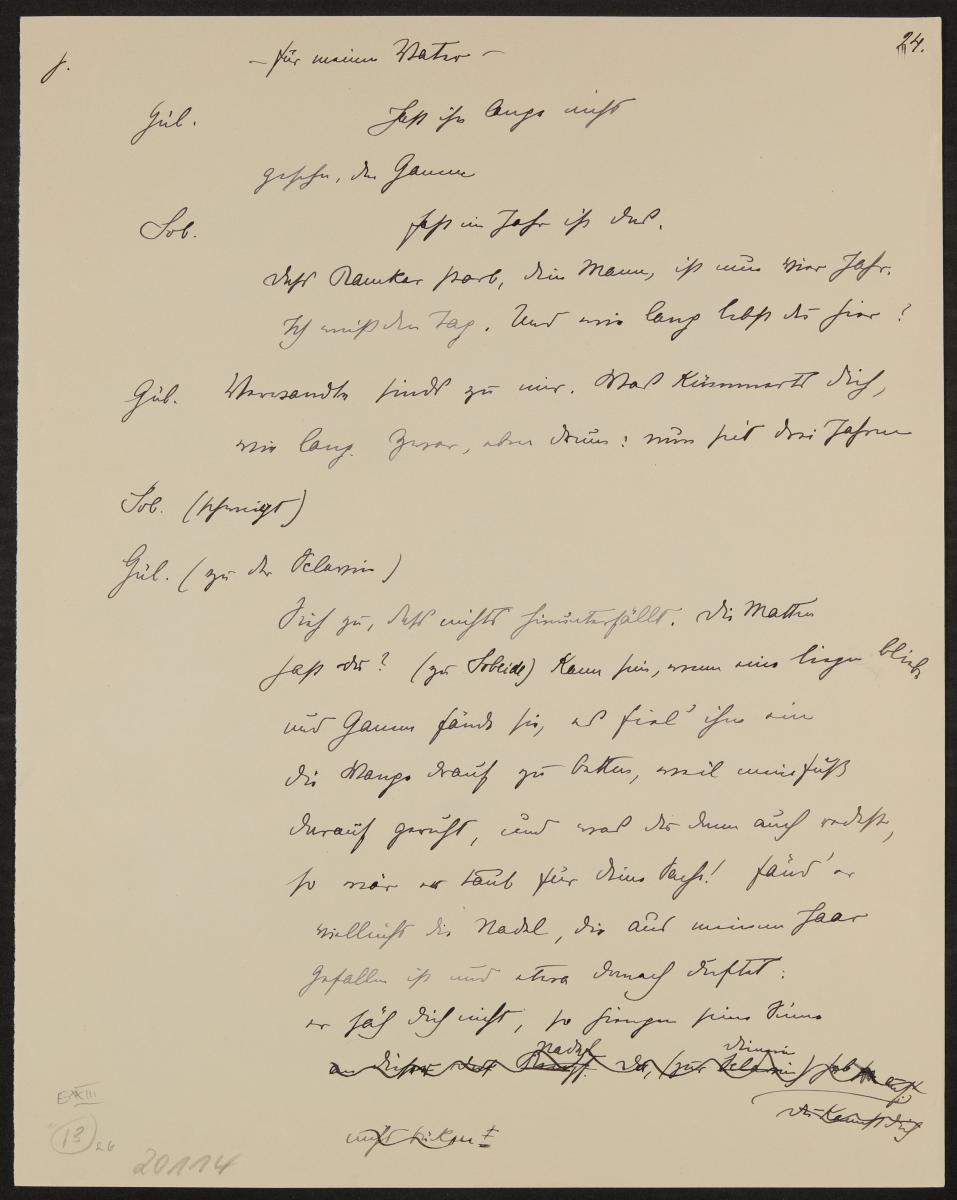 – für meinen Vater – 24.
Gül. Hast ihn lange nicht
gesehn, den Ganem
Sob. Fast ein Jahr ist das.
Dass Ramkar starb, dein Mann, ist nun vier Jahr.
Ich weiß den Tag. Und wie lang lebst du hier?
Gül. Verwandte sinds zu mir. Was kümmerts dich,
wie lang. Zwar, eben drum: nun seit drei Jahren
Sob. (schweigt)
Gül. (zu der Sclavin)
Sieh zu, dass nichts hinunterfällt. Die Matten
hast du? (zu Sobeide) Kann sein, wenn eine liegen bliebe
und Ganem fände sie, es fiel' ihm ein
die Wange drauf zu betten, weil mein Fuß
darauf geruht, und was du dann auch redest,
so wär er taub für deine Sache! fänd' er
vielleicht die Nadel, die aus meinem Haar
gefallen ist und etwa danach duftet:
er säh dich nicht, so hiengen seine Sinne
Nadel Dienerin
an dieser Du, (zur Sclavin) heb auf
du kannst dich
nicht bücken
E XIII
13 26
20114